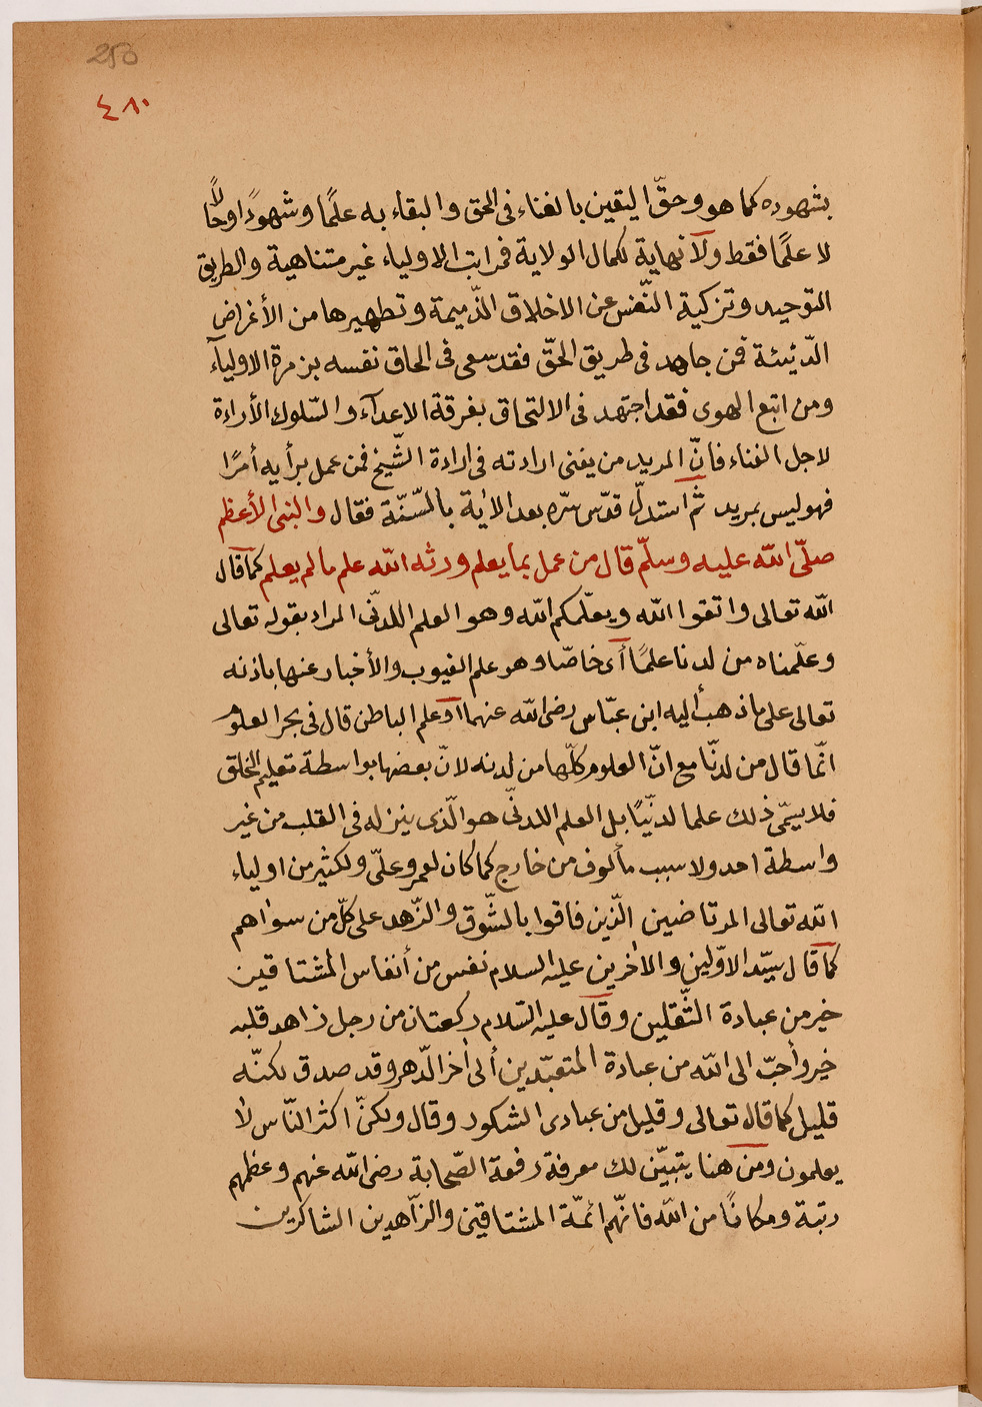 250
٤٨٠
بشهوده كما هو وحقّ اليقين بالفناء فى الحق والبقاء به علمًا وشهودًا وحالًا
لا علمًا فقط ولا نهاية لكمال الولاية فمراتب الاولياء غير متناهية والطريق
التوحيد وتزكية النّفس عن الاخلاق الذّميمة وتطهيرها من الأغراض
الدّنيئة فمن جاهد فى طريق الحقّ فقد سعى فى الحاق نفسه بزمرة الاوليآء
ومن اتبع الهوى فقد اجتهد فى الالتحاق بفرقة الاعدآء والسّلوك الأرادة
لاجل الفناء فانّ المريد من يفنى ارادته فى ارادة الشّيخ فمن عمل برأيه أمرًا
فهو ليس بمريد ثم استدلّ قدّس سرّه بعد الآية بالسّنّة فقال والنبى الأعظم
صلّى الله عليه وسلّم قال من عمل بما يعلم ورثه الله علم ما لم يعلم كما قال
الله تعالى واتقوا الله ويعلّمكم الله وهو العلم اللدنّى المراد بقوله تعالى
وعلّمناه من لدنا علمًا أى خاصّا وهو علم الغيوب والأخبار عنها باذنه
تعالى على ما ذهب أليه ابن عبّاس رضى الله عنهما او علم الباطن قال فى بحر العلوم
انّما قال من لدنّا مع انّ العلوم كلّها من لدنه لانّ بعضها بواسطة تعليم الخلق
فلا يسمّى ذلك علما لدنّيًا بل العلم اللدنّى هو الّذى ينزله فى القلب من غير
واسطة احد ولا سبب مألوف من خارج كما كان لعمر وعلىّ ولكثير من اولياء
الله تعالى المرتاضين الّذين فاقوا بالشّوق والزّهد على كلّ من سواهم
كما قال سيّد الاوّلين والاخرين عليه السلام نفس من أنفاس المشتاقين
خير من عبادة الثّقلين وقال عليه السّلام ركعتان من رجل زاهد قلبه
خير وأحبّ الى الله من عبادة المتعبّدين ألى أخر الدّهر وقد صدق لكنّه
قليل كما قال تعالى وقليل من عبادى الشكور وقال ولكنّ اكثر النّاس لا
يعلمون ومن هنا يتبيّن لك معرفة رفعة الصّحابة رضى الله عنهم وعظمهم
رتبة ومكانًا من الله فانّهم ائمّة المشتاقين والزّاهدين الشاكرين